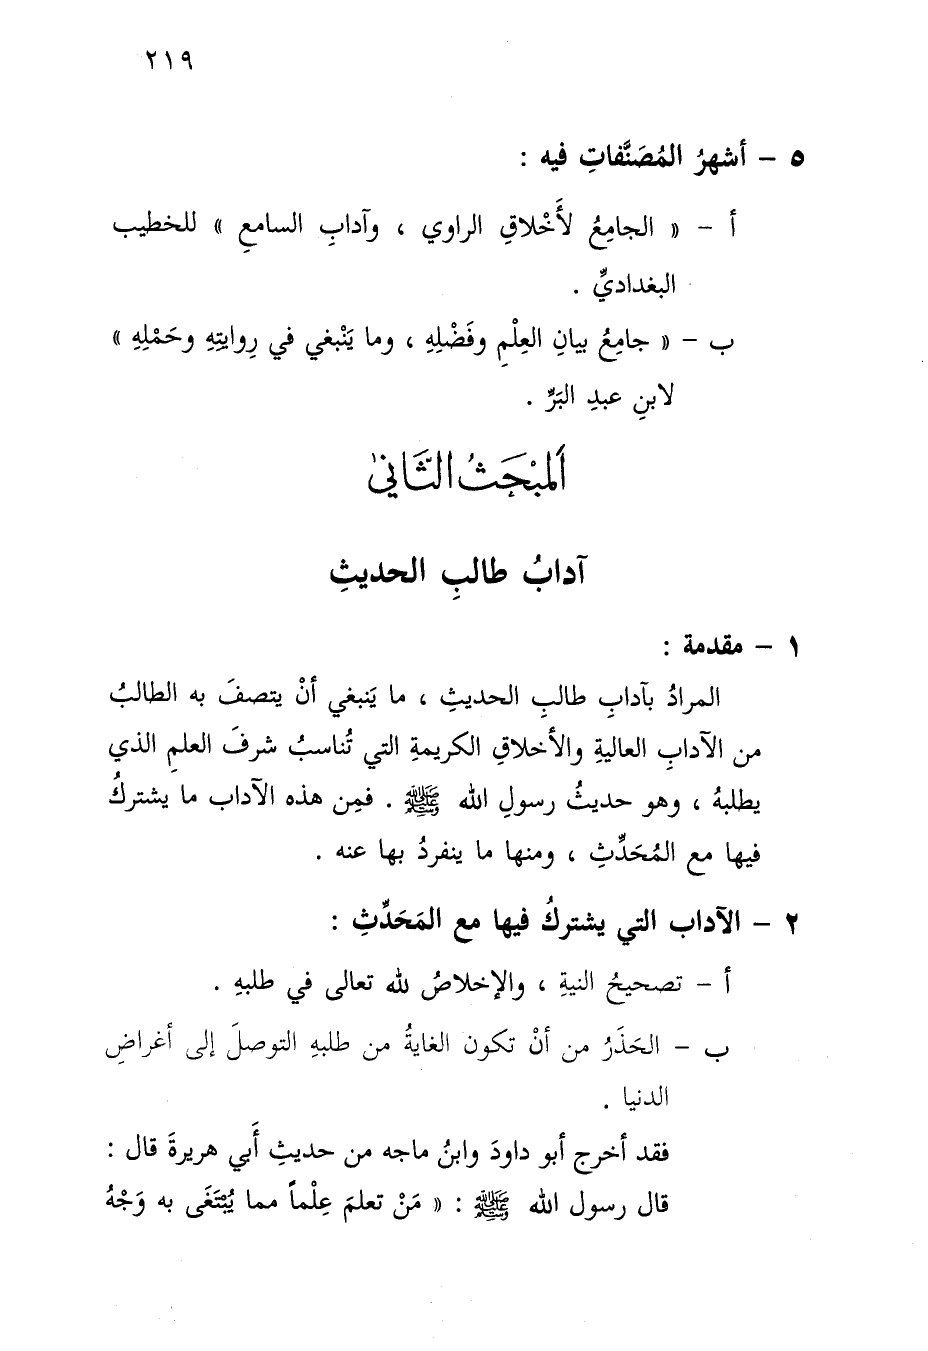 ٢١٩
٥ – أشهرُ المُصَنَّفاتِ فيه :
أ – « الجامِعُ لأَخْلاقِ الراوي ، وآدابِ السامعِ » للخطيب
البغداديِّ .
ب – « جامِعُ بيانِ العِلْمِ وفَضْلِهِ ، وما يَنْبغي في رِوايتِهِ وحَمْلِهِ »
لابنِ عبدِ البَرِّ .
اَلمبْحَثُ الثَّاني
آدابُ طالبِ الحديثِ
١ – مقدمة :
المرادُ بآدابِ طالبِ الحديثِ ، ما يَنبغي أنْ يتصفَ به الطالبُ
من الآدابِ العاليةِ والأخلاقِ الكريمةِ التي تُناسبُ شرفَ العلمِ الذي
يطلبهُ ، وهو حديثُ رسولِ الله ﷺ . فمِن هذه الآداب ما يشتركُ
فيها مع المُحَدِّثِ ، ومنها ما ينفردُ بها عنه .
٢ – الآداب التي يشتركُ فيها مع المَحَدِّثِ :
أ – تصحيحُ النيةِ ، والإخلاصُ لله تعالى في طلبهِ .
ب – الحَذَرُ من أنْ تكون الغايةُ من طلبهِ التوصلَ إلى أغراضِ
الدنيا .
فقد أخرج أبو داودَ وابنُ ماجه من حديثِ أَبي هريرةَ قال :
قال رسول الله ﷺ : « مَنْ تعلمَ عِلْماً مما يُبْتَغَى به وَجْهُ